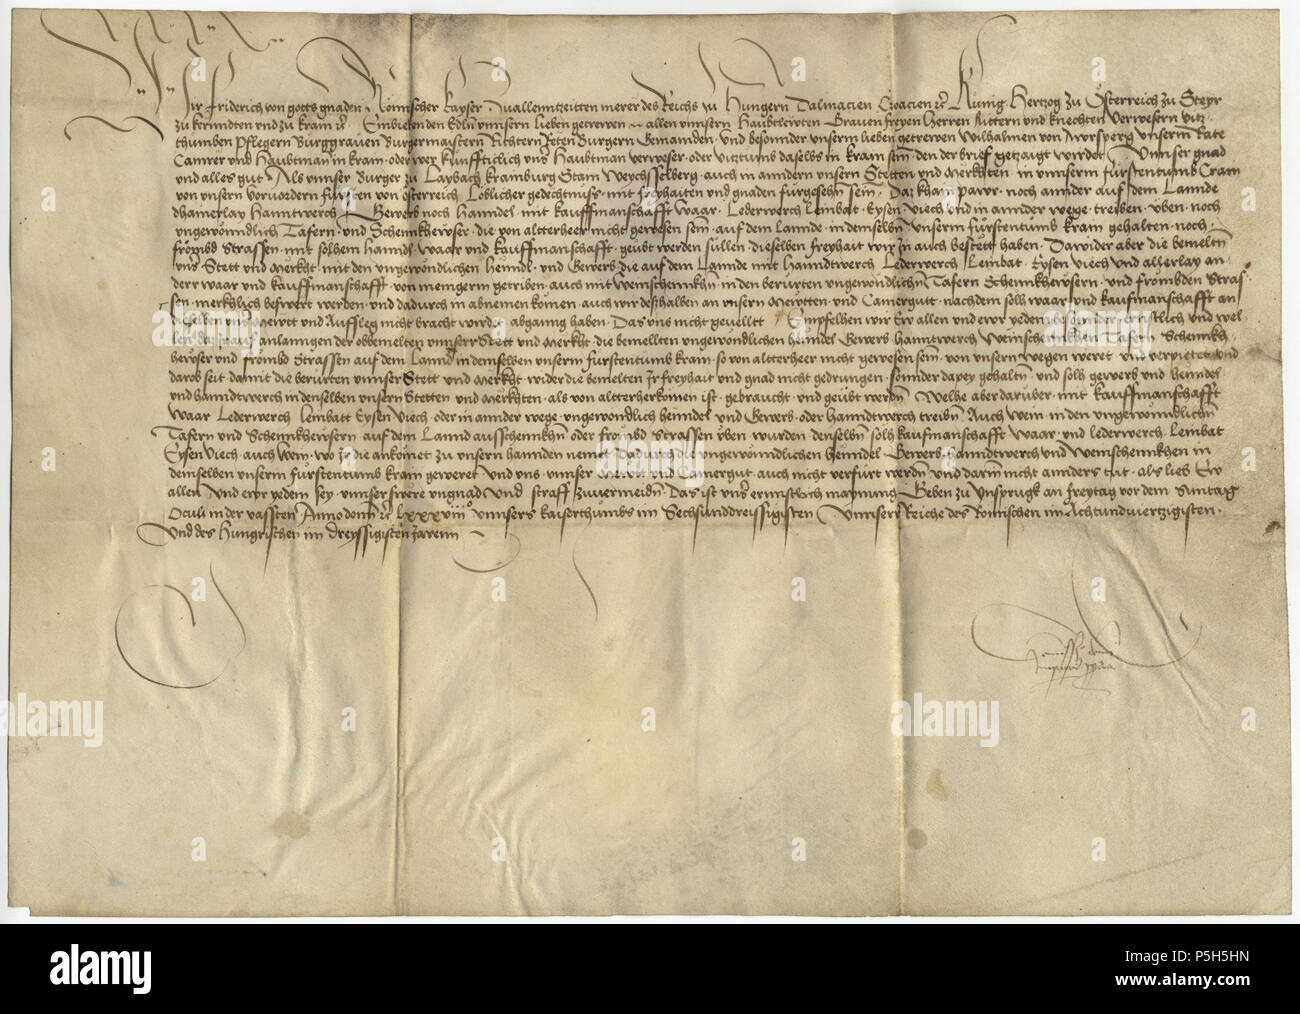 Wir Friderich von gotts gnaden Römischer Kayser zuallenntzeitten merer des Reichs zu Hungern Dalmacien Croacien etc Kunig Hertzog zu Österreich zu Steyr
zu kernndten und zu krain etc Embieten den Edln unnsern lieben getrewen allen unnsern Haubtlewten Grauen freyen Herren Rittern und knechten Verwesern Vitz
thumben Pflegern Burggrauen Burgermaistern Richtern Reten Burgern Gemainden und besonnder unnserm lieben getrewen Wilhalmen von Aursperg unserm Rate
Camrer und Haubtman in krain oder wer kunffticlich unns Haubtman verweser oder vitztumb daselbs in krain sein den der brief getzaigt wirdet Unnser gnad
und alles gut Als unnser Burger zu Laybach krainburg Stain Weychsselberg auch in anndern unsern Stetten und Merkhten in unnserm fürstentumb Crain
von unsern vorvordern fürsten von österreich Löblicher gedechtnuss mit freyhaiten und gnaden fürgesehn sein Daz khain pawr noch annder auf dem Lannde
dhainerlay Hanntwerch Gewerb noch Hanndel mit kauffmanschafft waar Lederwerch Leinbat Eysen Viech und in annder wege treiben üben noch
ungewöndlich Tafern und Schennkhewser die von alltterheer nicht gewesen sein auf dem Lannde in demselbn unserm fürstentumb krain gehalten noch
frömbd Strassen mit solhem hanndl waar und kauffmanschafft geübt werden süllen dieselben freyhait wir in auch bestett haben Dawider aber die bemeltn
unns Stett und Merkht mit den ungewöndlichen henndl und Gewerb die auf dem Lannde mit Hanndtwerch Lederwerch Leinbat Eysen Viech und allerlay an
derr waar und kauffmanschafft von menigerm getriben auch mit Weinschennkhn in den berürten ungewöndlichn Tafern Schennkhewsern und frömbden Stras
sen merkhlich beswert werden und dadurch in abnemen komen auch wir deshalben an unsern Mewtten und Camergut nachdem solh waar und kaufmanschafft an
dieselben unns Mewtt und Aufsleg nicht bracht wirdet abganng haben Das uns nicht gevelltt Empfelhen wir Ew allen und ewr yedem besonnder ernstlich und wel
len anlanngen der obbemelten unnser Stett und Merkht die bemellten ungewöndlichen henndel Gewerb hanntwerch Weinschennkhen Tafern Schennkh
hewser und frömbd Strassen auf dem Lannd in demselben unserm fürstentumb krain so von altterheer nicht gewesen sein von unsern wegen weret und verpietet und
darob seit damit die berürten unnser Stett und Merkht wider die bemelten Ir freyhait und gnad nicht gedrungen sonnder dapey gehaltn und solh gewerb und henndel
und hanndtwerch in denselben unsern Stetten und Merkhten als von altterherkomen ist gebraucht und geübt werden Welhe aber darüber mit kauffmanschafft
waar Lederwerch Leinbatt Eysen Viech oder in annder wege ungewöndlich henndel und Gewerb oder hanndtwerch treibn Auch wein in den ungewöndlichn
Tafern und Schennkhewsern auf dem Lannd ausschennkhn oder frömbd Strassen üben wurden denselbn solh kaufmanschafft waar und lederwerch Leinbat
Eysen Viech auch wein wo Ir die ankomet zu unsern hannden nemet Dadurch die ungewöndlichen henndel Gewerb hanndtwerch und weinschennkhen in
demselben unserm fürstentumb krain geweret und uns unser Mewtt und Camergut auch nicht verfürt werdn und darinn nicht annders tut als lieb Ew
allen und ewr yedem sey unnser swere ungnad und straff zuvermeiden Das ist unns ernnstlich maynung Geben zu Ynsprugk an freytag vor dem Sunntag
Oculi in der vassten Anno domi etc lxxxviiio unnsers kaiserthumbs im Sechsunddreissigisten Unnserr Reiche des Römischen im Achtundvierzigisten
Und des Hungrischen im dreyssigisten Jarenn
alamy
a
P5H5HN
Image ID: P5H5HN
www.alamy.com